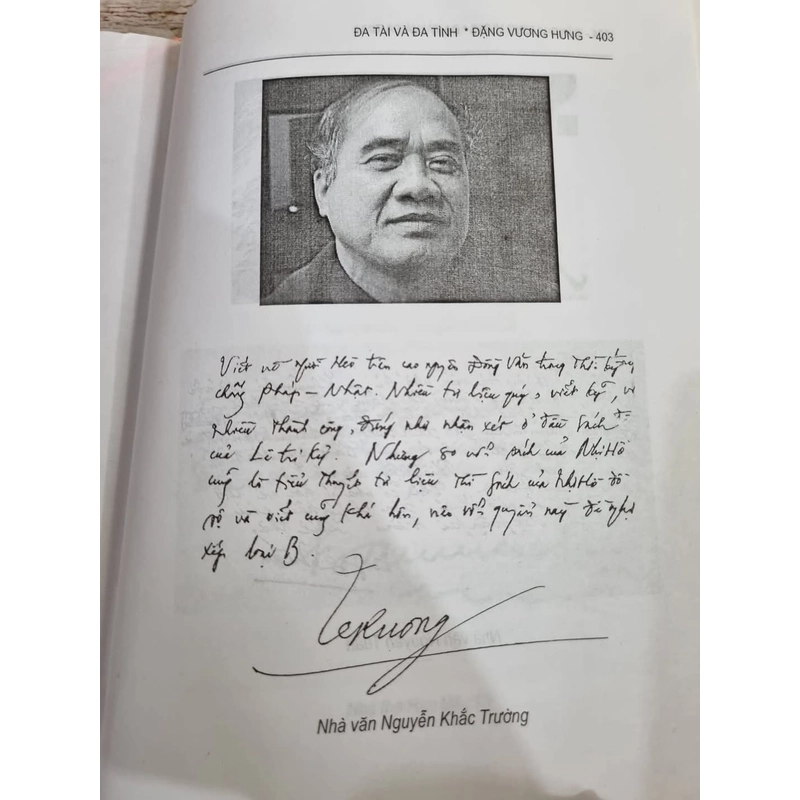 ĐA TÀI VÀ ĐA TÌNH * ĐẶNG VƯƠNG HƯNG - 403
Viết về người Mèo trên cao nguyên Đồng Văn trong thời kỳ
chống Pháp – Nhật. Nhiều tư liệu quý, viết kỹ, và
nhiều thành công, đúng như nhận xét ở đầu sách
của Lê Tri Kỷ. Nhưng so với sách của Nhị Hồ
cũng là tiểu thuyết tư liệu thì sách của Nhị Hồ đồ
sộ và viết cũng khá hơn, nên với quyển này đề nghị
xếp loại B.
Nhà văn Nguyễn Khắc Trường